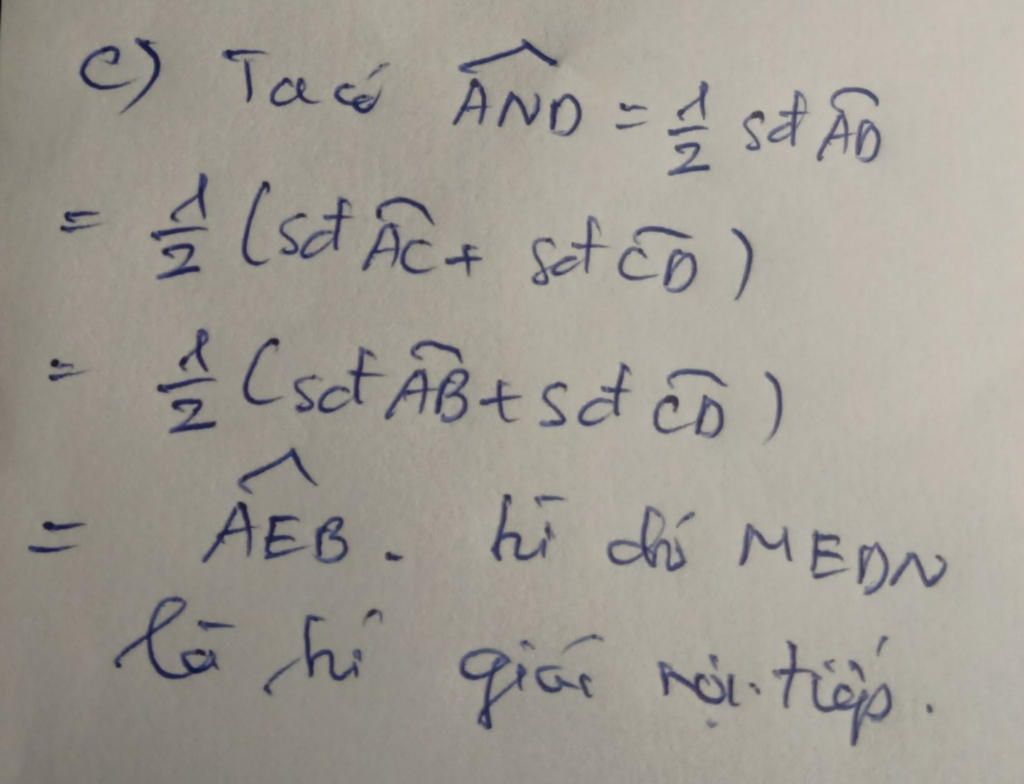 c) Ta có $\widehat{AND} = \frac{1}{2}$ sđ $\overset{\frown}{AD}$
$= \frac{1}{2}$ (sđ $\overset{\frown}{AC}$ + sđ $\overset{\frown}{CD}$)
$= \frac{1}{2}$ (sđ $\overset{\frown}{AB}$ + sđ $\overset{\frown}{CD}$)
$= \widehat{AEB}$. Từ đó MEDN
là tứ giác nội tiếp.